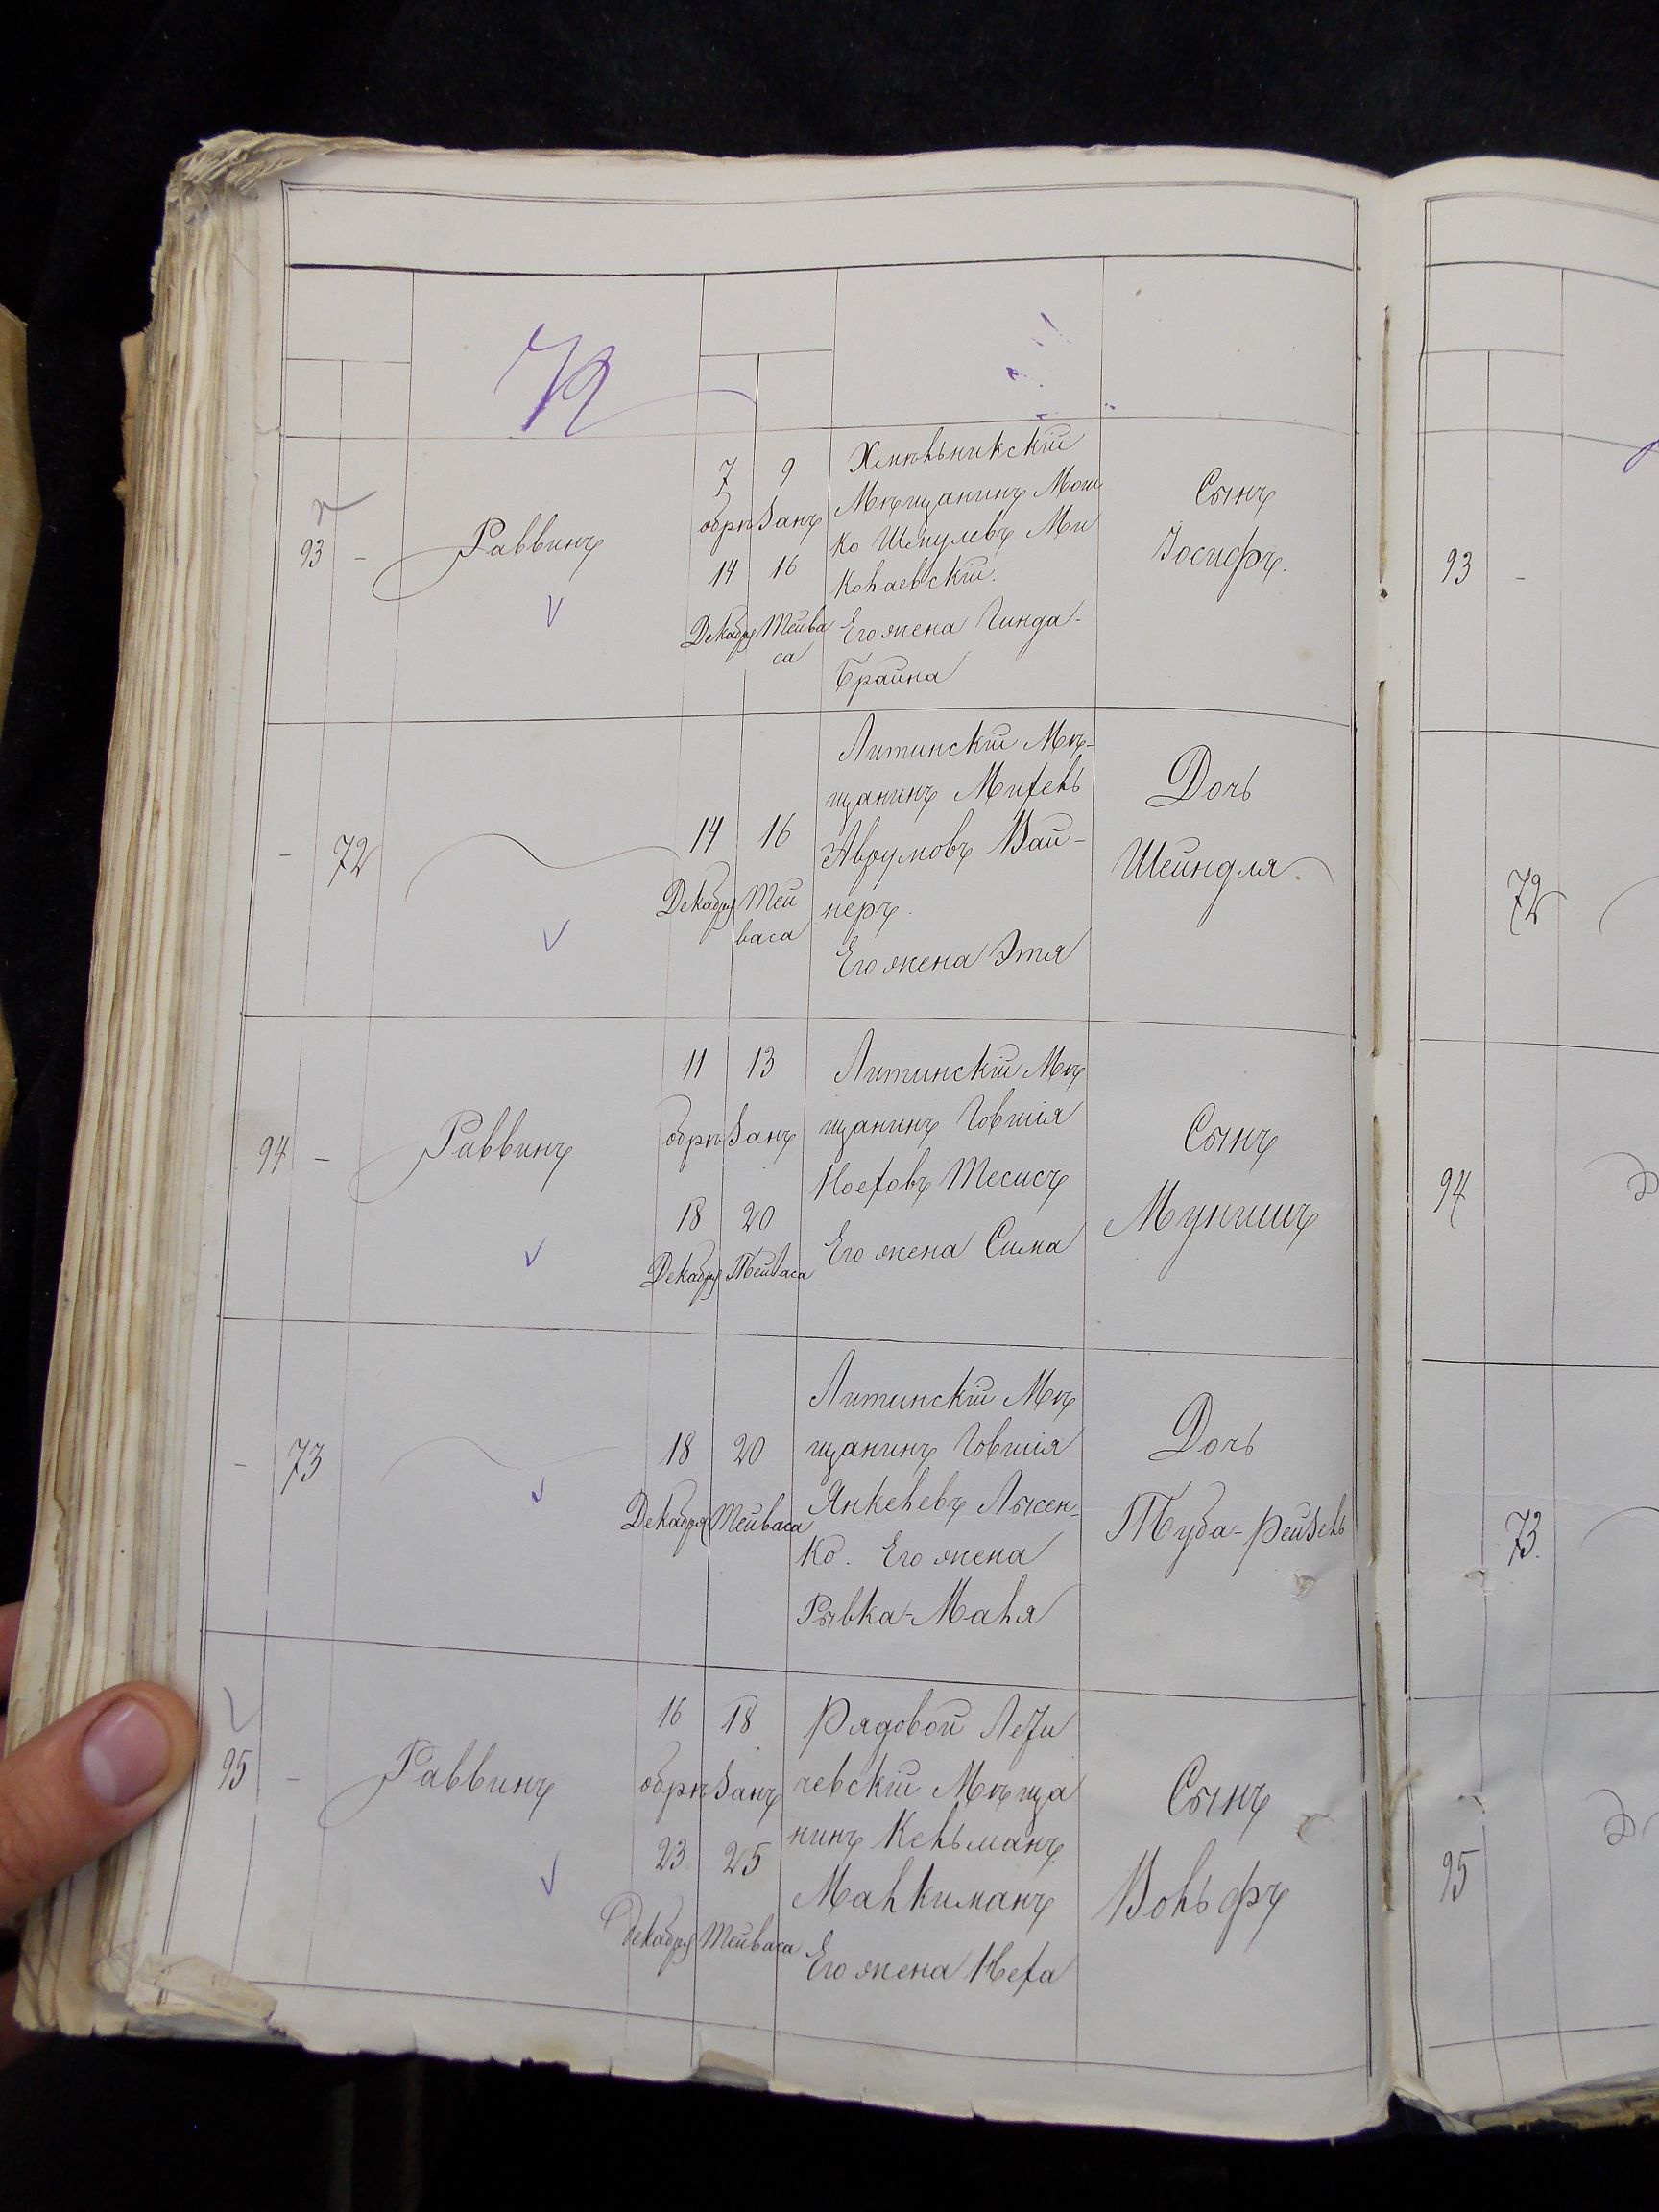 93
-
Раввинъ
7
9
обрѣзанъ
14
16
Декабря
Тейва
са
Хмѣльникскій
Мѣщанинъ Мош
ко Шмулевъ Ми
колаевскій.
Его жена Гинда-
Брайна
Сынъ
Іосифъ.
93
-
-
72
14
16
Декабря
Тей
васа
Литинскій Мѣ-
щанинъ Михель
Аврумовъ Вай-
неръ.
Его жена Этя
Дочь
Шейндля.
72
94
-
Раввинъ
11
13
обрѣзанъ
18
20
Декабря
Тейваса
Литинскій Мѣ
щанинъ Говшія
Ноеховъ Тесисъ
Его жена Сима
Сынъ
Мунишъ
94
-
73
18
20
Декабря
Тейваса
Литинскій Мѣ
щанинъ Говшія
Янкелевъ Лысен-
ко. Его жена
Рывка-Маля
Дочь
Туба-Рейзель
73.
95
-
Раввинъ
16
18
обрѣзанъ
23
25
Декабря
Тейваса
Рядовой Лети
чевскій Мѣща
нинъ Кельманъ
Малкиманъ
Его жена Неха
Сынъ
Вольфъ
95